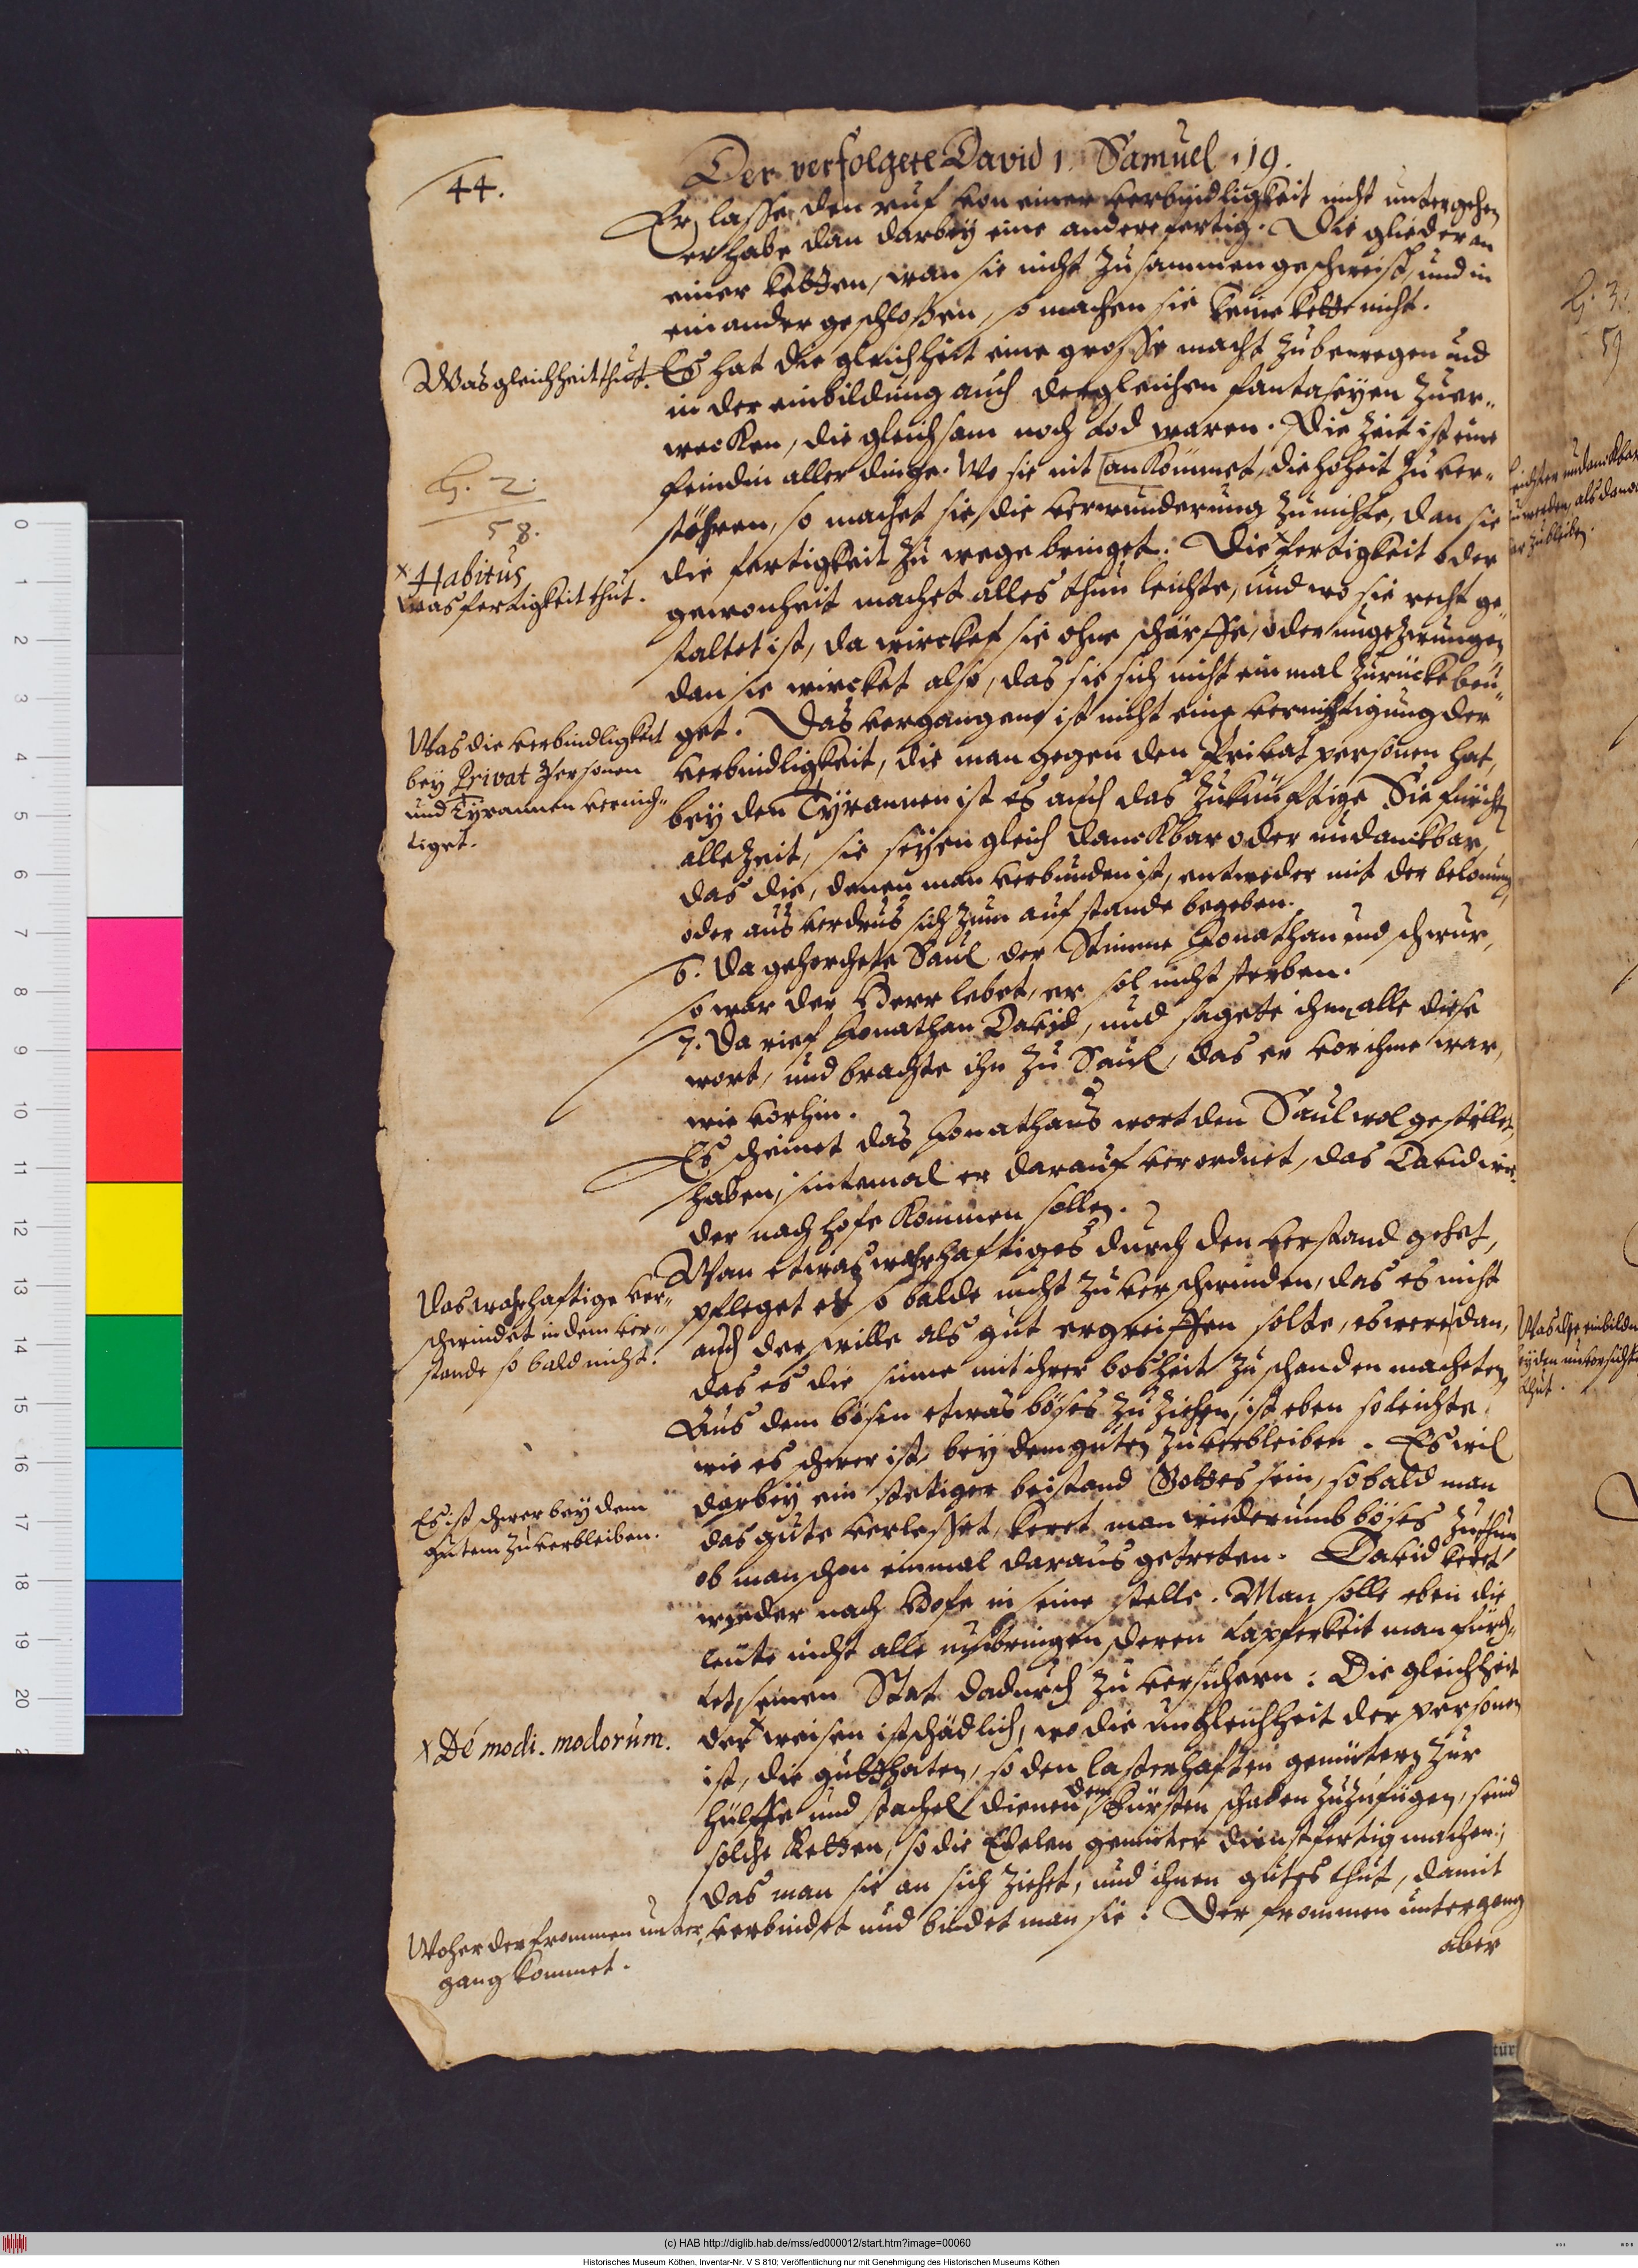 44.
Der verfolgete David 1. Samuel. 19.
Er lasse den ruf von einer verbindligkeit nicht untergehen
er habe dan darbey eine andere fertig. Die glieder an
einer ketten, wan sie nicht zusammen geschweist, und in
einander geschloßen, so machen sie keine kette nicht.
Was gleichheit thut.
Es hat die gleichheit eine grosse macht zu bewegen und
in der einbildung auch dergleichen fantaseyen zuer-
wecken, die gleichsam noch tod waren. Die zeit ist eine
feindin aller dinge. Wo sie nit ankömmet, die hoheit zu ver-
stöhren, so machet sie die verwunderung zunichte, dan sie
die fertigkeit zu wege bringet. Die x fertigkeit oder
B. 2.
58.
x Habitus
Was fertigkeit thut.
gewonheit machet alles thun leichte, und wo sie recht ge-
staltet ist, da wircket sie ohne schärffe, oder ungezwungen
dan sie wircket also, das sie sich nicht ein mal zurücke beu-
get. Das vergangene ist nicht eine vernichtigung der
Was die verbindligkeit
bey Privat Personen
und Tyrannen vernich-
tiget.
verbindligkeit, die man gegen den Privat personen hat,
bey den Tyrannen ist es auch das zukünftige Sie fürchten
allezeit, sie seyen gleich danckbar oder undanckbar,
das die, denen man verbunden ist, entweder mit der belonung
oder aus verdrus sich zum aufstande begeben.
6. Da gehorchete Saul der Stimme Jonathan und schwur,
so war der Herr lebet, er sol nicht sterben.
7. Da rief Jonathan David, und sagete ihm alle diese
wort, und brachte ihn zu Saul, das er vor ihme war,
wie vorhin.
Es scheinet das Jonathans wort den Saul wol gestillet
haben, sintemal er darauf verordnet, das David wie-
der nach hofe kommen sollen.
Wan etwas wahrhaftiges durch den verstand gehet,
Das wahrhaftige ver-
schwindet in dem ver-
stande so bald nicht.
pfleget es so balde nicht zu verschwinden, das es nicht
auch der wille als gut ergreiffen solte, es were dan,
das es die sinne mit ihrer bosheit zu schanden macheten
Aus dem bösen etwas böses zu ziehen, ist eben so leichte
wie es schwer ist, bey dem guten zuverbleiben. Es wil
Es ist schwer bey dem
gutem zuverbleiben.
darbey ein stetiger beistand Gottes sein, sobald man
das gute verlesset, keret man wiederumb böses zuthun
ob man schon einmal daraus getreten. David keret
wieder nach Hofe in seine stelle. Man solle eben die
leute nicht alle umbringen deren tapferkeit man fürch-
tet, seinen Stat dadurch zu versichern: Die gleichheit
x De' modi. modorum.
der x weisen ist schädlich, wo die ungleichheit der personen
ist, die gutthaten, so den lasterhaften gemütern zur
hülffe und stachel dienen dem Fürsten schaden zuzufügen, seind
solche ketten, so die Edelen gemüter dienstfertig machen;
das man sie an sich ziehet, und ihnen gutes thut, damit
Woher der frommen unter-
gang kommet.
verbindet und bindet man sie: Der frommen untergang
aber
B. 3.
59
0
1
2
3
4
5
6
7
8
9
10
11
12
13
14
15
16
17
18
19
20
(c) HAB http://diglib.hab.de/mss/ed000012/start.htm?image=00060
Historisches Museum Köthen, Inventar-Nr. V S 810; Veröffentlichung nur mit Genehmigung des Historischen Museums Köthen